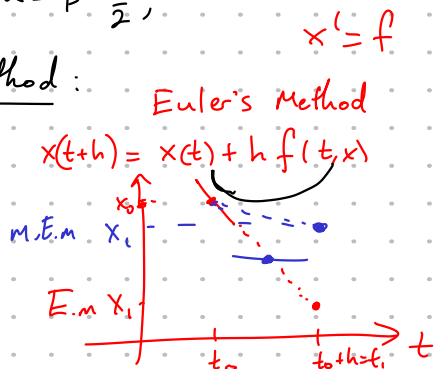 x' = f
hod :
Euler's Method
x(t+h) = x(t) + h f(t,x)
x₀
m.E.m x₁
E.m x₁
t₀ t₀+h=t₁ t